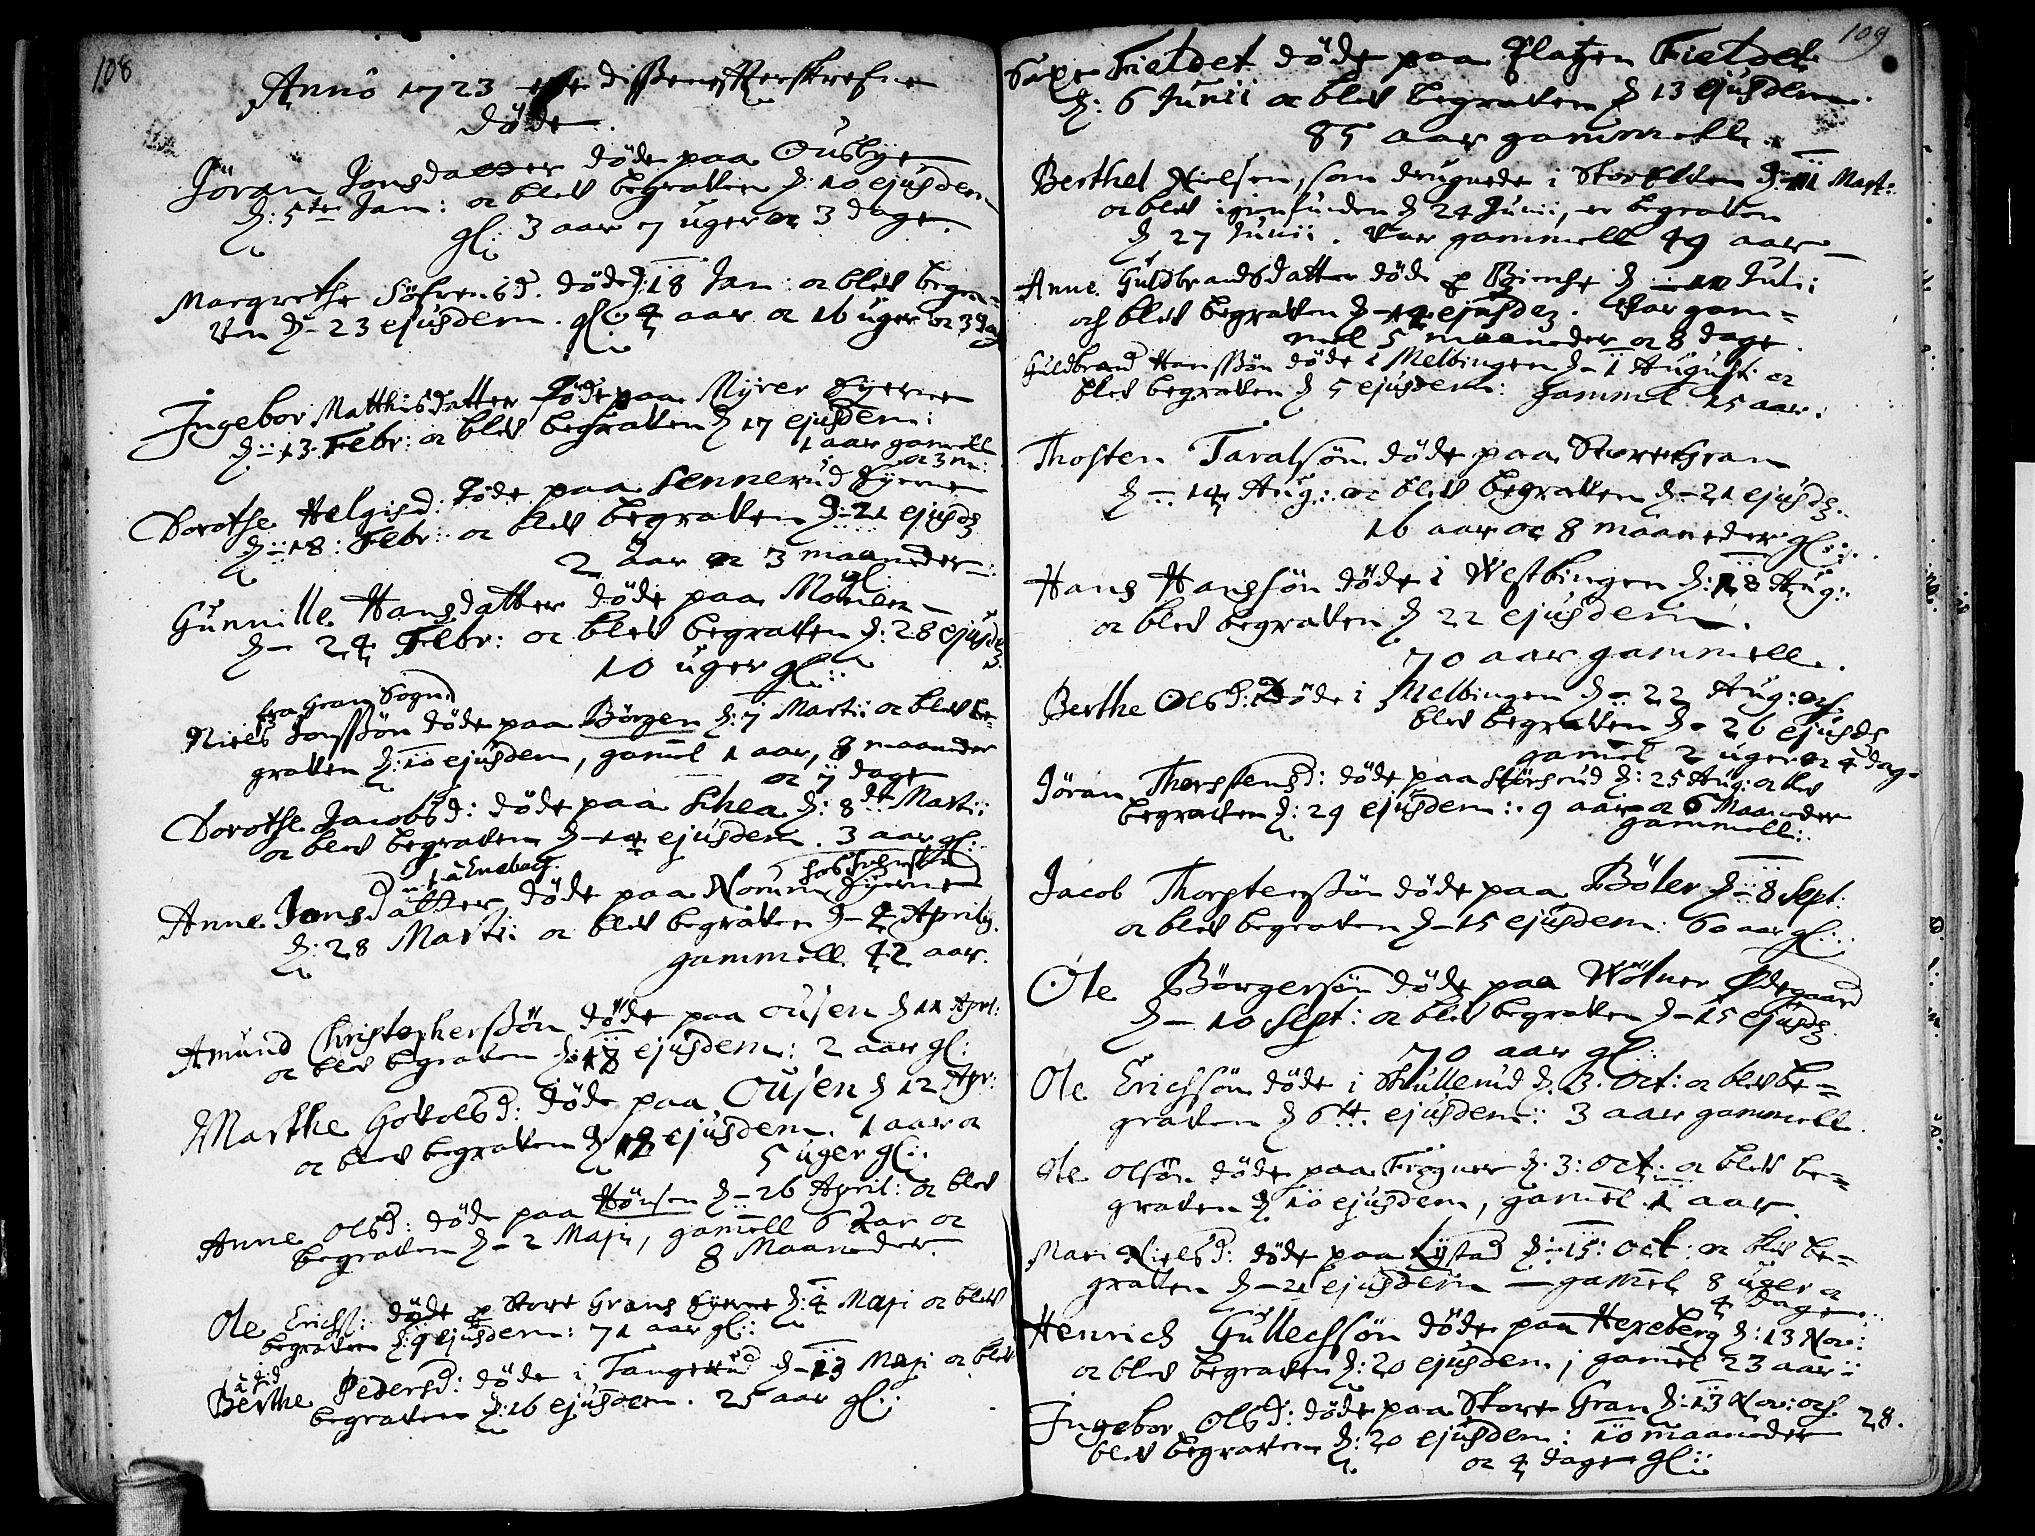 108
Anno 1723 ere disse efterskrefne
døde.
Jöran Jonsdatter døde paa Ousbye
d: 5te Jan: oc blev begraven d: 10 ejusdem
gl: 3 aar 7 uger oc 3 dage.
Margrethe Söfrensd. døde d: 18 Jan: oc blev begra=
ven d- 23 ejusdem. gl: 4 aar oc 16 uger oc 3 dag
Ingebor Matthisdatter døde paa Myrer Eyerne
d: 13 Febr: oc blev begraven d 17 ejusdem:
1 aar gamell
oc 3 m:
Dorothe Helgisd: døde paa Sennerud Eyerne
d: 18: Febr: oc blev begraven d- 21 ejusd
2 Aar oc 3 maaneder
gl:
Gunnille Hansdatter døde paa Monen
d- 24 Febr: oc blev begraven d: 28 ejusd
10 uger gl::
fra Gran Sogn
Niels Jonssön døde paa Börgen d: 7 Martii oc blev be=
graven d: 10 ejusdem, gamel 1 aar, 8 maaneder
oc 7 dage
Dorothe Jacobsd: døde paa Schea d: 8de Martii:
oc blev begraven d- 14 ejusdem. 3 aar gl:
à Enebach
Anne Jonsdatter døde paa Norum Eyerne
d: 28 Martii oc blev begraven d- 4 Aprilis.
gammell 42 aar.
Amund Christopherssön døde paa Ousen d 11 Apri:
oc blev begraven d: 18 ejusdem: 2 aar gl:
Marthe Govolsd: døde paa Ousen d 12 Apr:
oc blev begraven d 18 ejusdem. 1 aar oc
5 uger gl:
Anne Olsd: døde paa Hönsen d- 26 April: oc blev
begraven d- 2 Maji, gamell 6 Aar oc
8 Maaneder.
Ole Erichs: døde p Store Grans Eyerne d: 4 Maji oc blev
begraven d: 9 ejusdem: 71 aar gl:
Berthe Pedersd: døde i Tangerud d- 13 Maji oc blev
begraven d: 16 ejusdem. 25 aar gl:
109
Saxe Fieldet døde paa Platzen Fieldet
d: 6 Junii oc blev begraven d 13 ejusdem.
85 aar gammell.
Berthel Nielsen, som drugnede i Storelven d: 11 Mart:
oc blev igienfunden d 24 Junii, er begraven
d 27 Junii. Var gammell 49 aar
Anne Guldbrandsdatter døde p Bierche d 11 Julii
och blev begraven d- 14 ejusdem. Var gam=
mel 5 maaneder oc 8 dage.
Guldbrand Hanssön døde i Melbingen d- 1 Augusti oc
blev begraven d 5 ejusdem: gammel 15 aar.
Thosten Taralsön døde paa Store Gran
d- 14 Aug: oc blev begraven d- 21 ejusd
16 aar oc 8 maaneder gl::
Hans Hanssön døde i Westbingen d: 18 Aug:
oc blev begraven d 22 ejusdem.
70 aar gammell.
Berthe Olsd: Døde i Melbingen d- 22 Aug: och
blev begraven d- 26 ejusd
gamel 2 uger oc 4 dag
Jöran Thorstensd: døde paa Störsrud d: 25 Aug: oc blev
begraven d: 29 ejusdem: 9 aar oc 6 Maaneder
gammell:
Jacob Thorsterssön døde paa Böler d- 8 Sept:
oc blev begraven d- 15 ejusdem: 60 aar gl:
Ole Börgersön døde paa Wölner Ødegaard
d- 10 Sept: oc blev begraven d- 15 ejusd
70 aar gl:
Ole Erichsön døde i Skullerud d. 3. Oct: oc blev be=
graven d 6te. ejusdem: 3 aar gammell.
Ole Olsön døde paa Frogner d. 3: Oct: oc blev be=
graven d 10 ejusdem, gamel 1 aar.
Mari Nielsd: døde paa Lystad d- 15: Oct: oc blev be=
graven d- 21 ejusdem - gamel 8 uger oc
4 dage
Henrich Gullechssön døde paa Hexeberg d: 13 Nov:
oc blev begraven d: 20 ejusdem, gamel 23 aar:
Ingebor Olsd: døde paa Store Gran d- 13 Nov: och
blev begraven d: 20 ejusdem: 10 maaneder
oc 4 dage gl::
28.